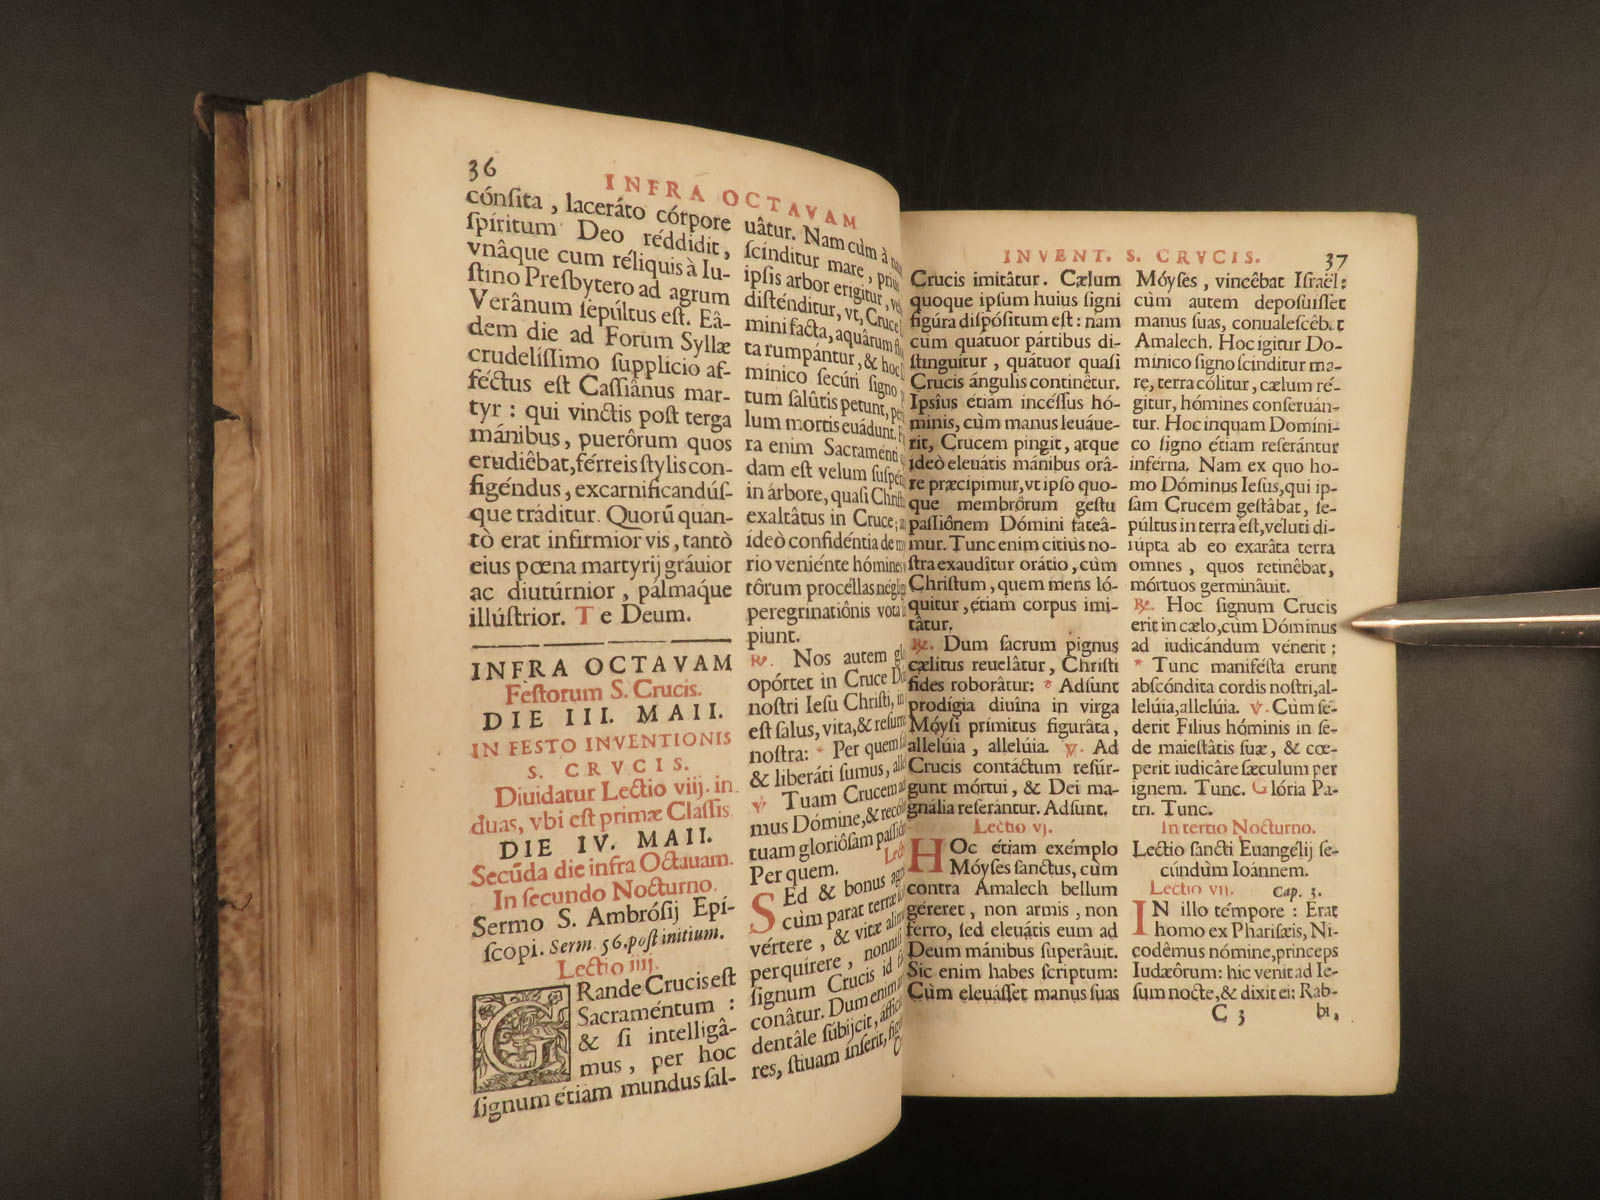 36
INFRA OCTAVAM
cónsita, laceráto córpore
spíritum Deo réddidit,
vnâque cum réliquis à Iu-
stino Presbytero ad agrum
Verânum sepúltus est. Eâ-
dem die ad Forum Syllæ
crudelíssimo supplicio af-
féctus est Cassiânus mar-
tyr : qui vinctis post terga
mánibus, puerôrum quos
erudiêbat, férreis stylis con-
figéndus, excarnificandús-
que tráditur. Quorũ quan-
tò erat infirmior vis, tantò
eius pœna martyrij gráuior
ac diutúrnior, pálmaque
illústrior. Te Deum.
INFRA OCTAVAM
Festorum S. Crucis.
DIE III. MAII.
IN FESTO INVENTIONIS
S. CRVCIS.
Diuidatur Lectio viij. in
duas, vbi est primæ Classis.
DIE IV. MAII.
Secũda die infra Octauam.
In secundo Nocturno.
Sermo S. Ambrósij Epí-
scopi. Serm. 56. post initium.
Lectio iiij.
GRande Crucis est
Sacraméntum :
& si intelligâ-
mus, per hoc
signum étiam mundus sal-
uâtur. Nam cùm à
scínditur mare,
ipsis arbor erígitur,
disténditur, vt, Cruce
mini facta, aquârum
ta rumpántur, & hoc
mínico secúri signo
tum salûtis petunt,
lum mortis euádunt.
ra enim Sacraménti
dam est velum
in árbore, quasi
exaltâtus in Cruce;
ídeò confidéntia de
rio veniénte hómines
tôrum procéllas
peregrinatiônis vota
piunt.
℟. Nos autem
opórtet in Cruce
nostri Iesu Christi, in
est salus, vita, &
nostra: * Per quem
& liberáti sumus,
℣. Tuam Crucem
mus Dómine, &
tuam gloriôsam
Per quem.
SEd & bonus
cùm parat terræ
vértere, & vitæ
perquírere,
signum Crucis id
conâtur. Dum enim
dentâle súbijcit,
res, stiuam ínserit,
INVENT. S. CRVCIS.
37
Crucis imitâtur. Cælum
quoque ipsum huius signi
figúra dispósitum est : nam
cùm quátuor pártibus di-
stinguitur, quátuor quasi
Crucis ángulis continêtur.
Ipsîus étiam incéssus hó-
minis, cùm manus leuáue-
rit, Crucem pingit, atque
ídeò eleuátis mánibus orâ-
re præcípimur, vt ipso quo-
que membrôrum gestu
passiônem Dómini fateâ-
mur. Tunc enim cítius no-
stra exaudîtur orátio, cùm
Christum, quem mens ló-
quitur, étiam corpus imi-
tâtur.
℟. Dum sacrum pignus
cælitus reuelâtur, Christi
fides roborâtur: * Adsunt
prodígia diuîna in virga
Móysi prímitus figurâta,
allelúia, allelúia. ℣. Ad
Crucis contáctum resúr-
gunt mórtui, & Dei ma-
gnália reserántur. Adsunt.
Lectio vj.
HOc étiam exémplo
Móyses sanctus, cùm
contra Amalech bellum
géreret, non armis, non
ferro, sed eleuátis eum ad
Deum mánibus superâuit.
Sic enim habes scriptum:
Cùm eleuásset manus suas
Móyses, vincêbat Israël:
cùm autem deposuísset
manus suas, conualescêbat
Amalech. Hoc ígitur Do-
mínico signo scínditur ma-
re, terra cólitur, cælum ré-
gitur, hómines conseruán-
tur. Hoc inquam Domíni-
co signo étiam reserántur
inférna. Nam ex quo ho-
mo Dóminus Iesus, qui ip-
sam Crucem gestâbat, se-
púltus in terra est, véluti di-
rupta ab eo exarâta terra
omnes, quos retinêbat,
mórtuos germinâuit.
℟. Hoc signum Crucis
erit in cælo, cùm Dóminus
ad iudicándum vénerit :
* Tunc manifésta erunt
abscóndita cordis nostri, al-
lelúia, allelúia. ℣. Cùm sé-
derit Fílius hóminis in se-
de maiestâtis suæ, & cœ-
perit iudicâre sæculum per
ignem. Tunc. Glória Pa-
tri. Tunc.
In tertio Nocturno.
Lectio sancti Euangélij se-
cúndùm Ioánnem.
Lectio vij. Cap. 3.
IN illo témpore : Erat
homo ex Pharisæis, Ni-
codêmus nómine, princeps
Iudæôrum: hic venit ad Ie-
sum nocte, & dixit ei: Rab-
C 3 bi,